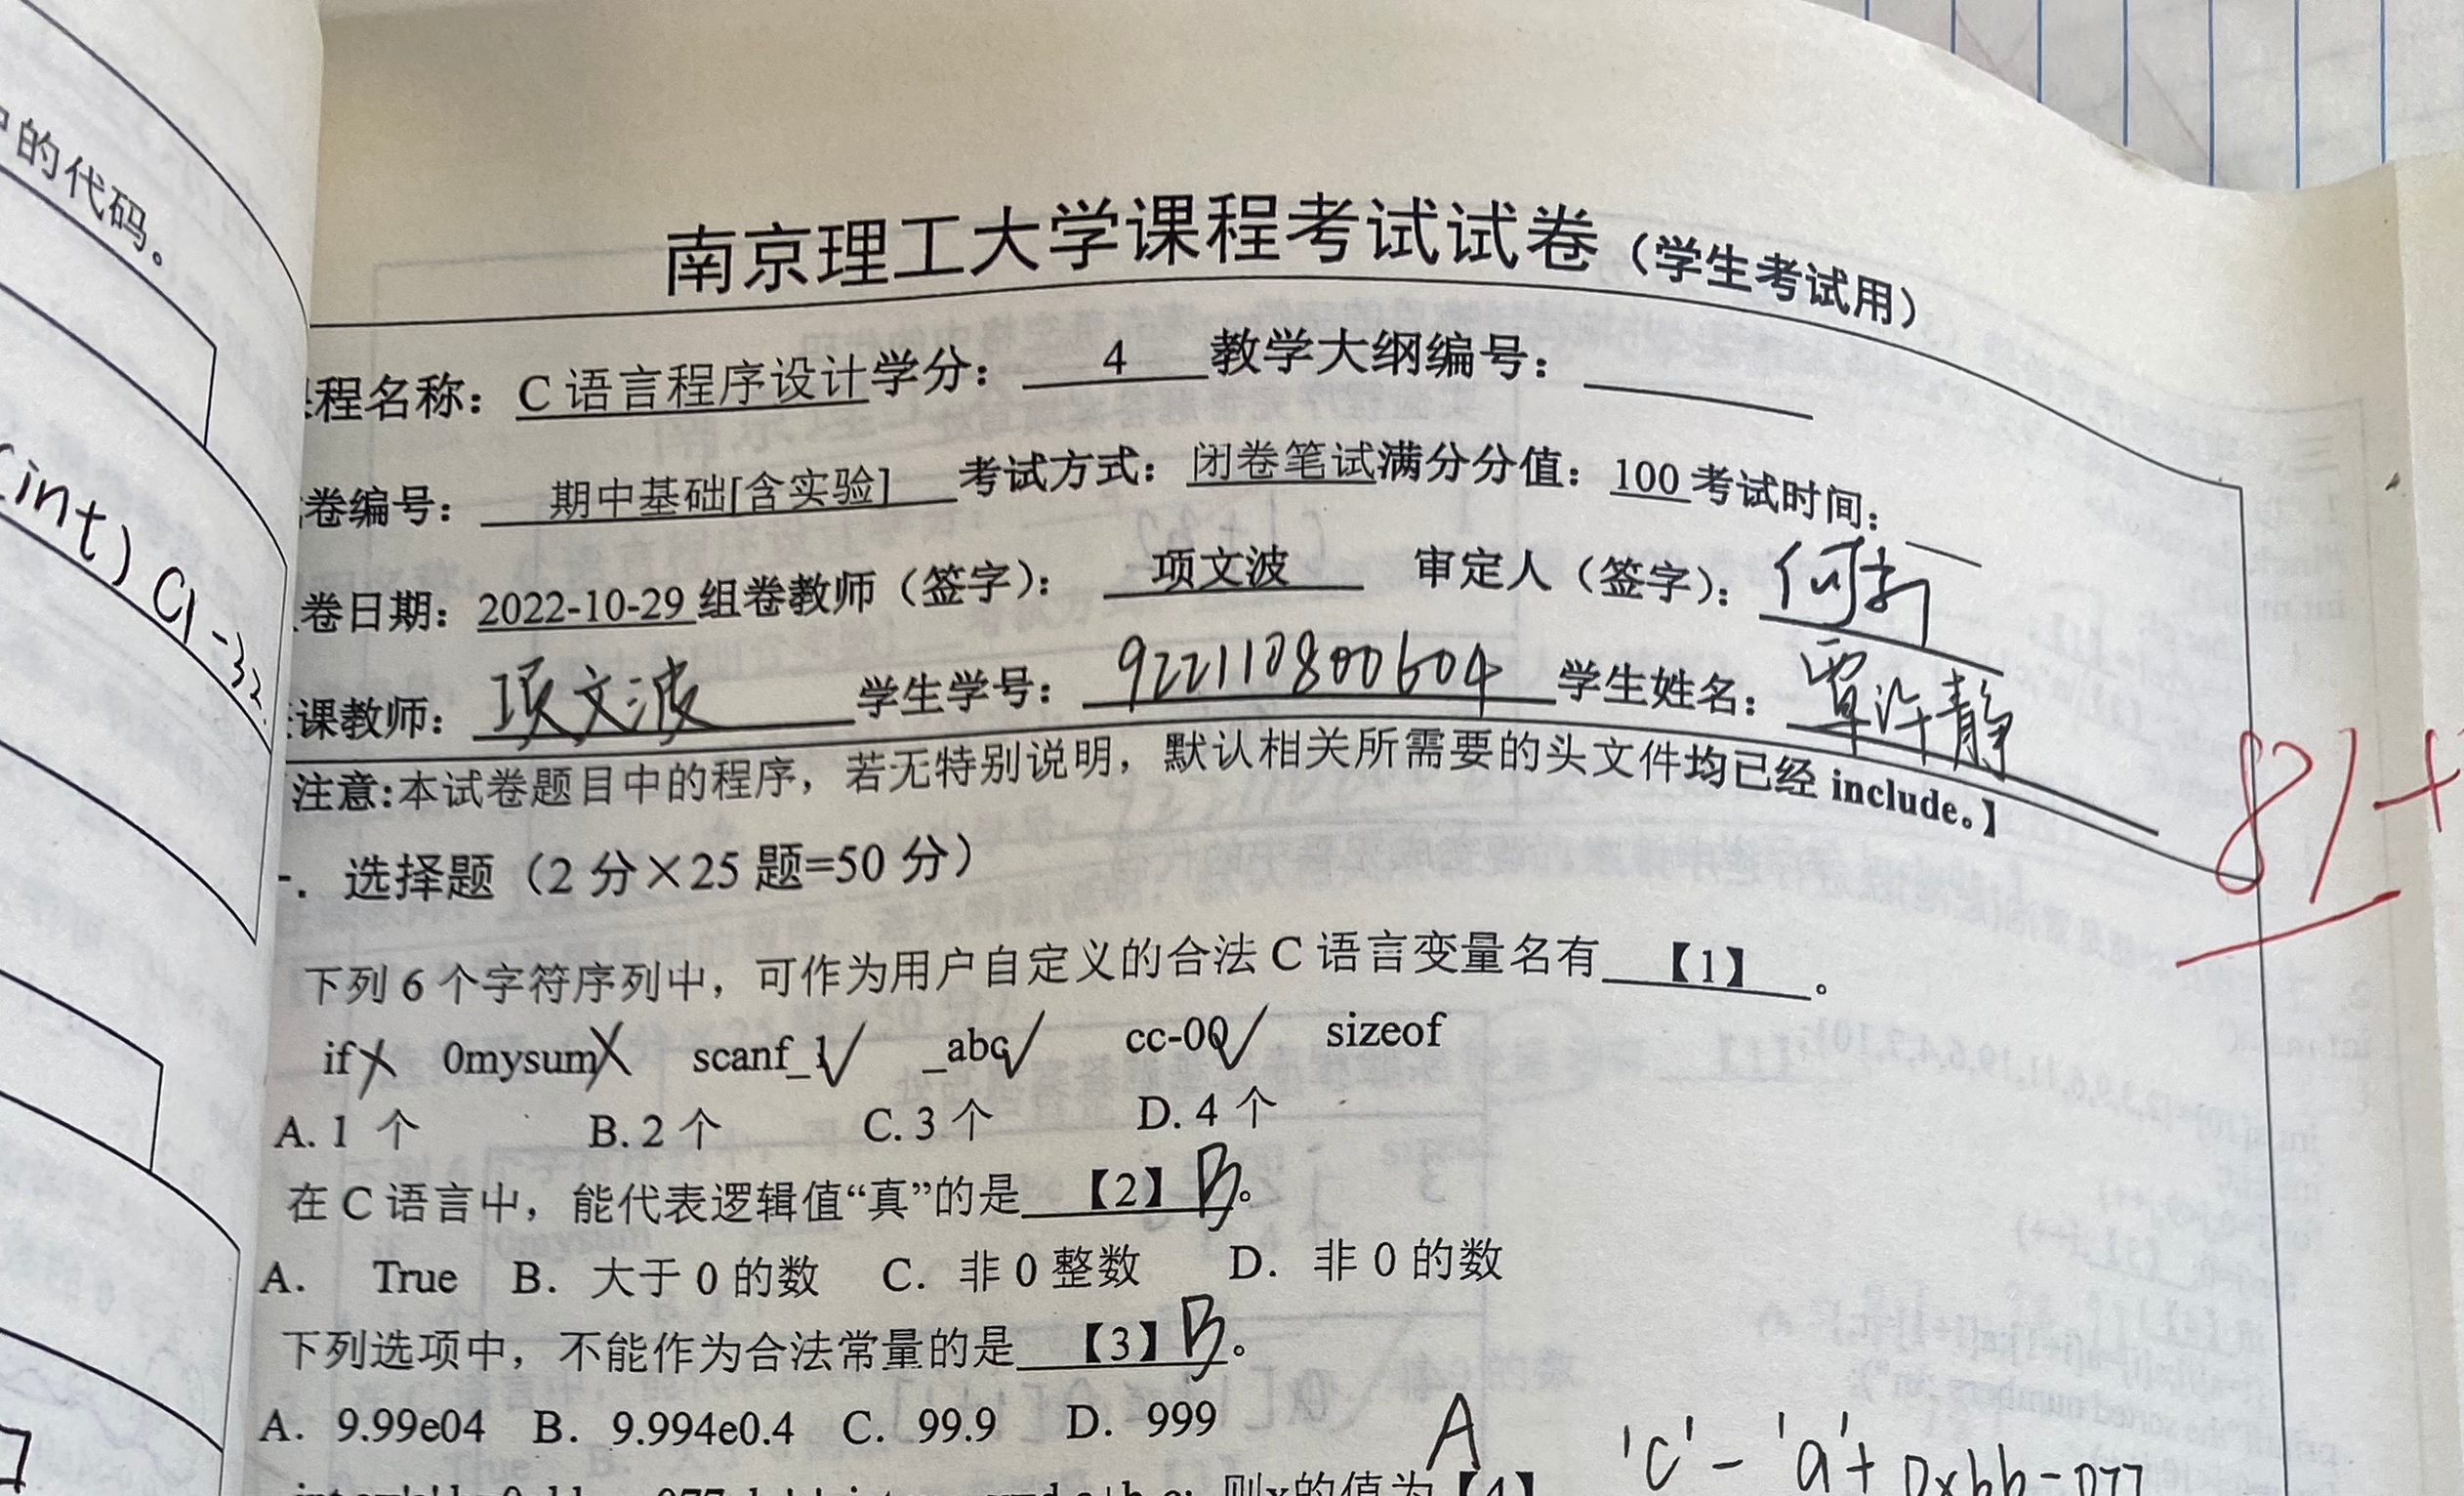 中的代码。
(int) C1-32
南京理工大学课程考试试卷（学生考试用）
程名称：C 语言程序设计学分： 4 教学大纲编号：
卷编号： 期中基础[含实验] 考试方式：闭卷笔试满分分值：100 考试时间：
卷日期：2022-10-29 组卷教师（签字）： 项文波 审定人（签字）：
课教师：项文波 学生学号：922110800604 学生姓名：覃许静
注意:本试卷题目中的程序，若无特别说明，默认相关所需要的头文件均已经 include。】
81+
一．选择题（2 分×25 题=50 分）
下列 6 个字符序列中，可作为用户自定义的合法 C 语言变量名有 【1】 。
if × 0mysum × scanf_1 √ _abc √ cc-00 √ sizeof
A. 1 个 B. 2 个 C. 3 个 D. 4 个
在 C 语言中，能代表逻辑值“真”的是 【2】 B。
A． True B．大于 0 的数 C．非 0 整数 D．非 0 的数
下列选项中，不能作为合法常量的是 【3】 B。
A．9.99e04 B．9.994e0.4 C．99.9 D．999
A 'c' - 'a' + 0xbb - 077
则x的值为【4】